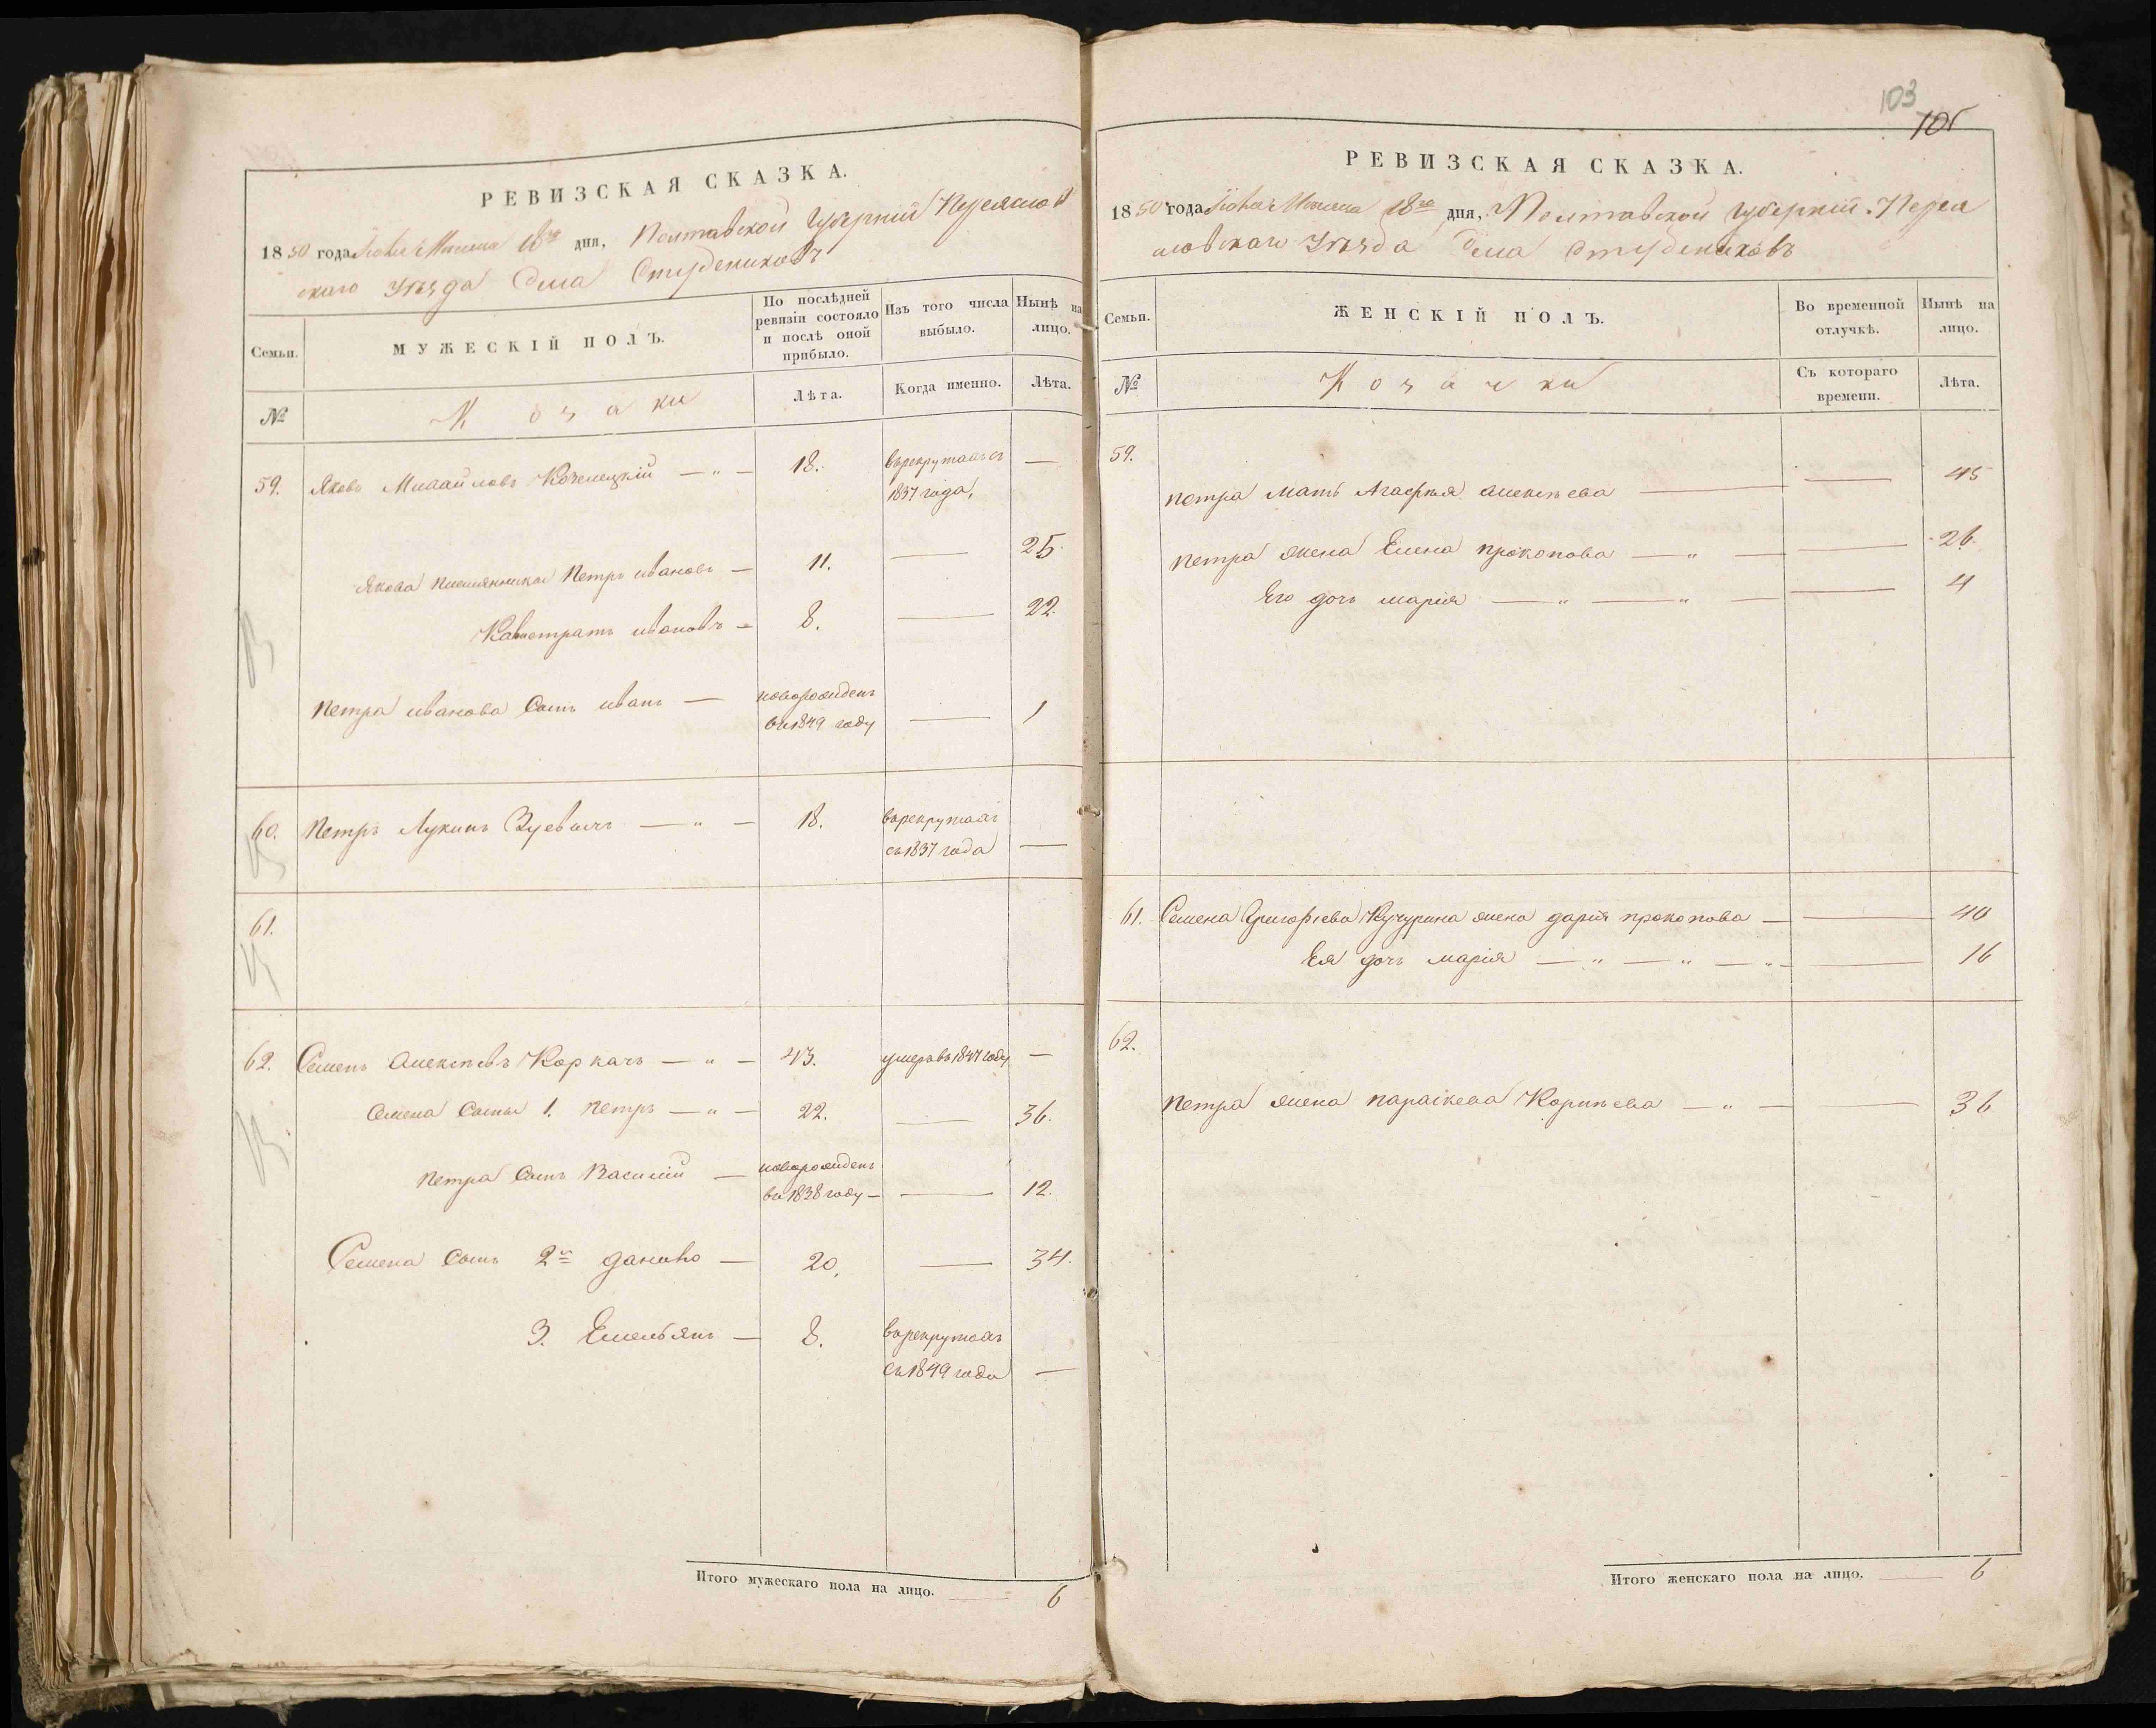 РЕВИЗСКАЯ СКАЗКА.
1850 года Іюня Мѣсяца 18го дня, Полтавской Губерніи Переяслов
скаго Уѣзда Села Студениковъ
Семьи.
МУЖЕСКІЙ ПОЛЪ.
По послѣдней ревизіи состояло и послѣ оной прибыло.
Изъ того числа выбыло.
Нынѣ на лицо.
№
Козаки
Лѣта.
Когда именно.
Лѣта.
59. Яковъ Михайловъ — " — 18. въ рекрутахъ съ —
1837 года,
Якова племянники Петръ Ивановъ — 11. — 25.
Ивановъ — 8. — 22.
Петра Иванова Сынъ Иванъ — новорожденъ
въ 1849 году — 1
60. Петръ Лукинъ Зуевичъ — " — 18. въ рекрутахъ
съ 1837 года —
61.
62. Семенъ Алексѣевъ Коркачъ — " — 43. умеръ въ 1847 году —
Семена Сыны 1. Петръ — " — 22. — 36.
Петра Сынъ Василій — новорожденъ
въ 1838 году — — 12.
Семена Сынъ 2й Данило — 20. — 34.
3. Емельянъ — 8. въ рекрутахъ
съ 1849 года —
Итого мужескаго пола на лицо. — 6
103
105
РЕВИЗСКАЯ СКАЗКА.
1850 года Іюня Мѣсяца 18го дня, Полтавской Губерніи Перея
словскаго Уѣзда Села Студениковъ
Семьи.
ЖЕНСКІЙ ПОЛЪ.
Во временной отлучкѣ.
Нынѣ на лицо.
№
Козачки
Съ котораго времени.
Лѣта.
59.
Петра мать Агафія Алексѣева — — 45
Петра жена Елена Прокопова — " — — 26.
Его дочь Марія — " — " — — 4
61. Семена Григорьева Кучурина жена Дарія Прокопова — — 40
Ея дочь Марія — " — " — " — — 16
62.
Петра жена Параскева Корнѣева — " — — 36
Итого женскаго пола на лицо. — 6